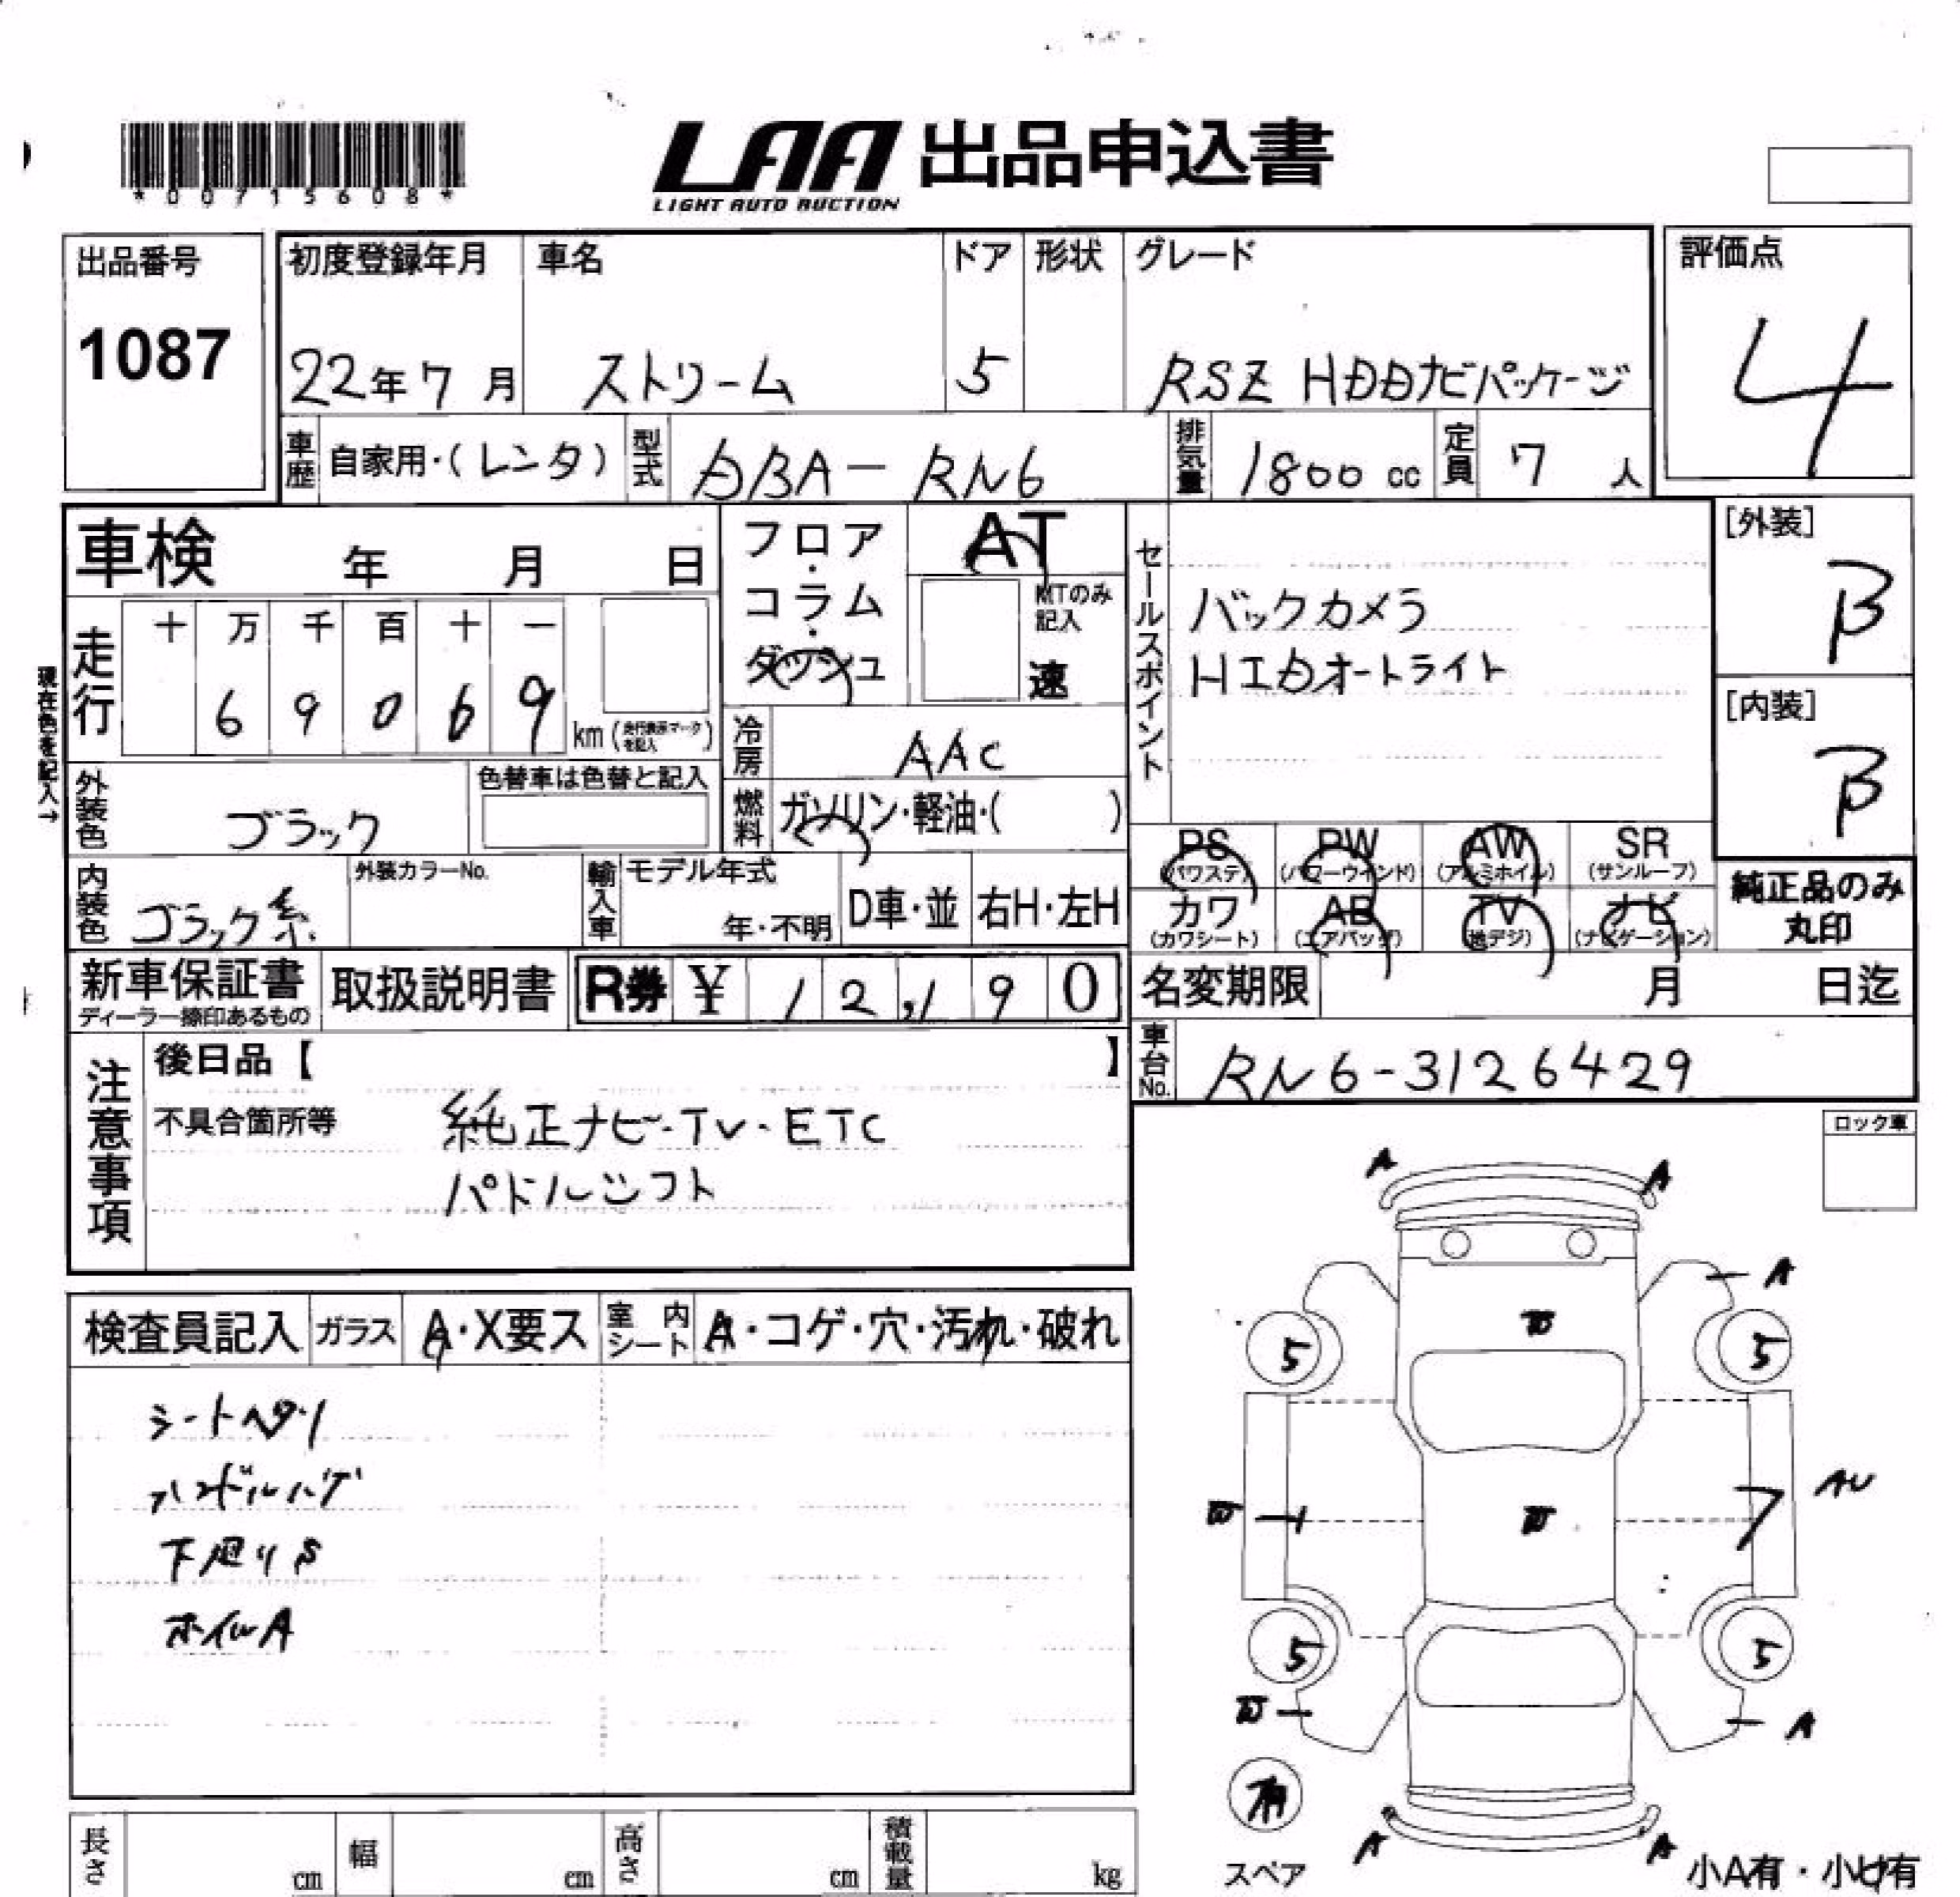 *00715608*
LAA 出品申込書
LIGHT AUTO AUCTION
出品番号
1087
初度登録年月 車名 ドア 形状 グレード
22年7月 ストリーム 5 RSZ HDDナビパッケージ
評価点
4
車歴 自家用・(レンタ) 型式 DBA-RN6 排気量 1800cc 定員 7人
車検 年 月 日
フロア・コラム・ダッシュ
AT
MTのみ記入
速
セールスポイント
バックカメラ
HIDオートライト
[外装]
B
[内装]
B
現在色を記入→
走行 十 万 千 百 十 一
6 9 0 6 9 km (走行表示マークを記入)
冷房 AAC
外装色 ブラック 色替車は色替と記入
燃料 ガソリン・軽油・( )
PS PW AW SR
(パワステ) (パワーウインド) (アルミホイル) (サンルーフ)
カワ AB TV ナビ
(カワシート) (エアバッグ) (地デジ) (ナビゲーション)
純正品のみ
丸印
内装色 ブラック系 外装カラーNo. 輸入車 モデル年式 年・不明 D車・並 右H・左H
新車保証書 取扱説明書 R券 ¥ 12,190
ディーラー捺印あるもの
名変期限 月 日迄
車台No. RN6-3126429
注意事項
後日品【 】
不具合箇所等 純正ナビ・TV・ETC
パドルシフト
ロック車
検査員記入 ガラス A・X要ス 室内シート A・コゲ・穴・汚れ・破れ
シートヘタリ
ハンドルハゲ
下廻りS
ホイルA
A A
A
W
5 5
W W AU
5 5
W A
有
スペア
A A
小A有・小U有
長さ cm 幅 cm 高さ cm 積載量 kg